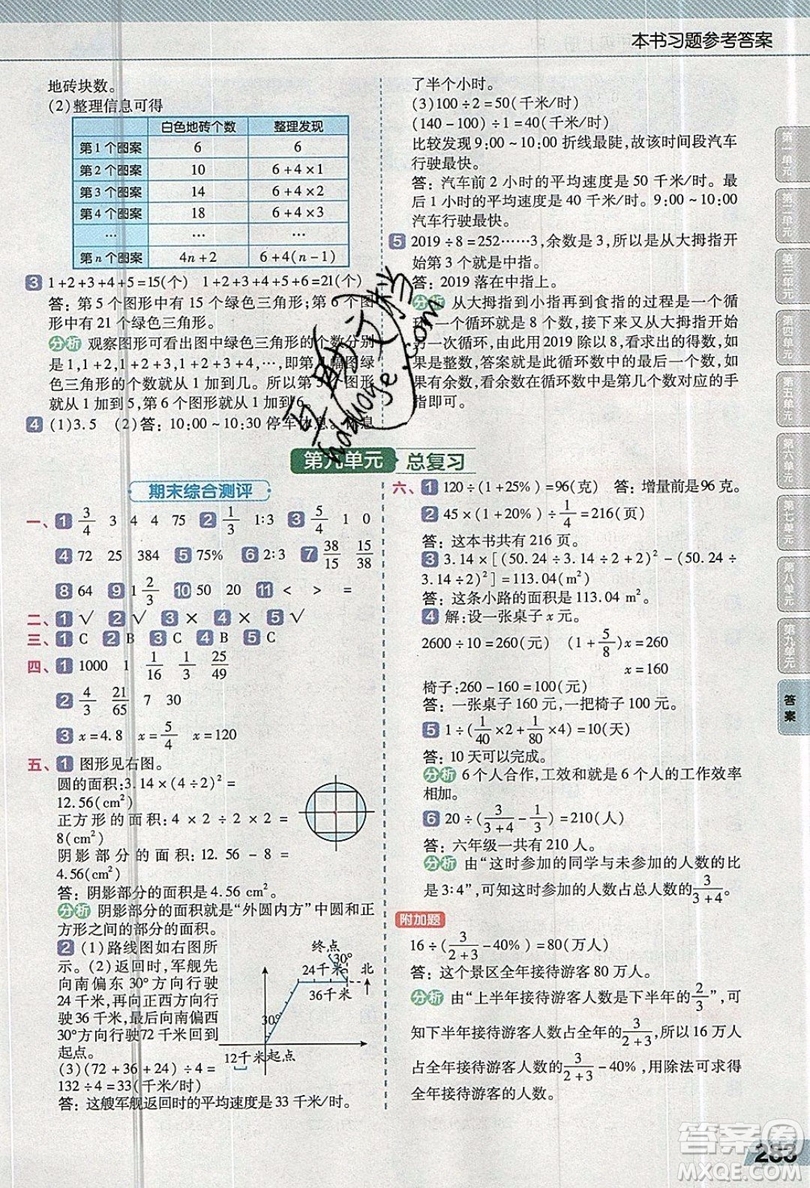 本书习题参考答案
地砖块数。
(2)整理信息可得
白色地砖个数 整理发现
第1个图案 6 6
第2个图案 10 6+4×1
第3个图案 14 6+4×2
第4个图案 18 6+4×3
… … …
第n个图案 4n+2 6+4(n-1)
3 1+2+3+4+5=15(个) 1+2+3+4+5+6=21(个)
答:第5个图形中有15个绿色三角形;第6个图
形中有21个绿色三角形。
分析 观察图形可看出图中绿色三角形的个数分别
是1,1+2,1+2+3,1+2+3+4,…,即第几幅图绿
色三角形的个数就从1加到几。所以第5个图形
就从1加到5,第6个图形就从1加到6。
4 (1)3.5 (2)答:10:00~10:30停车休息。休息
了半个小时。
(3)100÷2=50(千米/时)
(140-100)÷1=40(千米/时)
比较发现9:00~10:00折线最陡,故该时间段汽车
行驶最快。
答:汽车前2小时的平均速度是50千米/时,
最后1小时的平均速度是40千米/时。9:00~10:00
汽车行驶最快。
5 2019÷8=252……3,余数是3,所以从大拇指开
始第3个中指。
答:2019落在中指上。
分析 从大拇指到小指再到食指的过程是一个循
环,一个循环就是8个数,接下来又从大拇指开始
下一次循环,因此用2019除以8,看求出的得数,如
果是整数,答案就是此循环数中最后一个数,如果
有余数,看余数在循环数中是第几个数对应的手
指就可以。
第九单元 总复习
期末综合测评
一、1 3/4 3 4 4 75 2 1/3 1:3 3 1/5 4 1 0
4 72 25 384 5 75% 6 2:3 7 38/15 15/38
8 64 9 1 2/3 10 20 11 < > =
二、1 √ 2 √ 3 × 4 × 5 ×
三、1 C 2 B 3 C 4 B 5 C
四、1 1000 1 1/16 1/21 25/49
2 4/3 21/65 7 30
3 x=4.8 x=5/4 x=120
五、1 图形见右图。
圆的面积:3.14×(4÷2)²=
12.56(cm²)
正方形的面积:4×2÷2×2=
8(cm²)
阴影部分的面积:12.56-8=
4.56(cm²)
答:阴影部分的面积是4.56 cm²。
分析 阴影部分的面积就是“外圆内方”中圆和正
方形之间的部分的面积。
2 (1)路线图如右图所
示。(2)返回时,军舰先
向正西方向行驶
24千米,再向
西偏南60°方向行驶
36千米,最后向正
西方向行驶72千米回到
起点。
(3)(72+36+24)÷4=
132÷4=33(千米/时)
答:这艘军舰返回时的平均速度是33千米/时。
终点
30°
24千米
北
36千米
30°
12千米 起点
六、1 120÷(1+25%)=96(克) 答:增量前是96克。
2 45×(1+20%)÷1/4=216(页)
答:这本书共有216页。
3 3.14×[(50.24÷3.14÷2+2)²-(50.24÷
3.14÷2)²]=113.04(m²)
答:这条小路的面积是113.04 m²。
4 解:设一张桌子x元。
2600÷10=260(元) (1+5/8)x=260
x=160
椅子:260-160=100(元)
答:一张桌子160元,一把椅子100元。
5 1÷(1/40×2+1/80×4)=10(天)
答:10天可以完成。
分析 6个人合作,工效和就是6个人的工作效率
相加。
6 20÷(3/(3+4)-1/3)=210(人)
答:六年级一共有210人。
分析 由“这时参加的同学与未参加的人数的比
是3:4”,可知这时参加的人数占总人数的3/(3+4)。
附加题
16÷(3/(2+3)-40%)=80(万人)
答:这个景区全年接待游客80万人。
分析 由“上半年接待游客人数是下半年的2/3”,可
知下半年接待游客人数占全年的3/(2+3),所以16万人
占全年接待游客人数的3/(2+3)-40%,用除法可求得
全年接待游客的人数。
第一单元
第二单元
第三单元
第四单元
第五单元
第六单元
第七单元
第八单元
第九单元
答案
互助文档
hdzuoye.com
答案圈
MXQE.COM